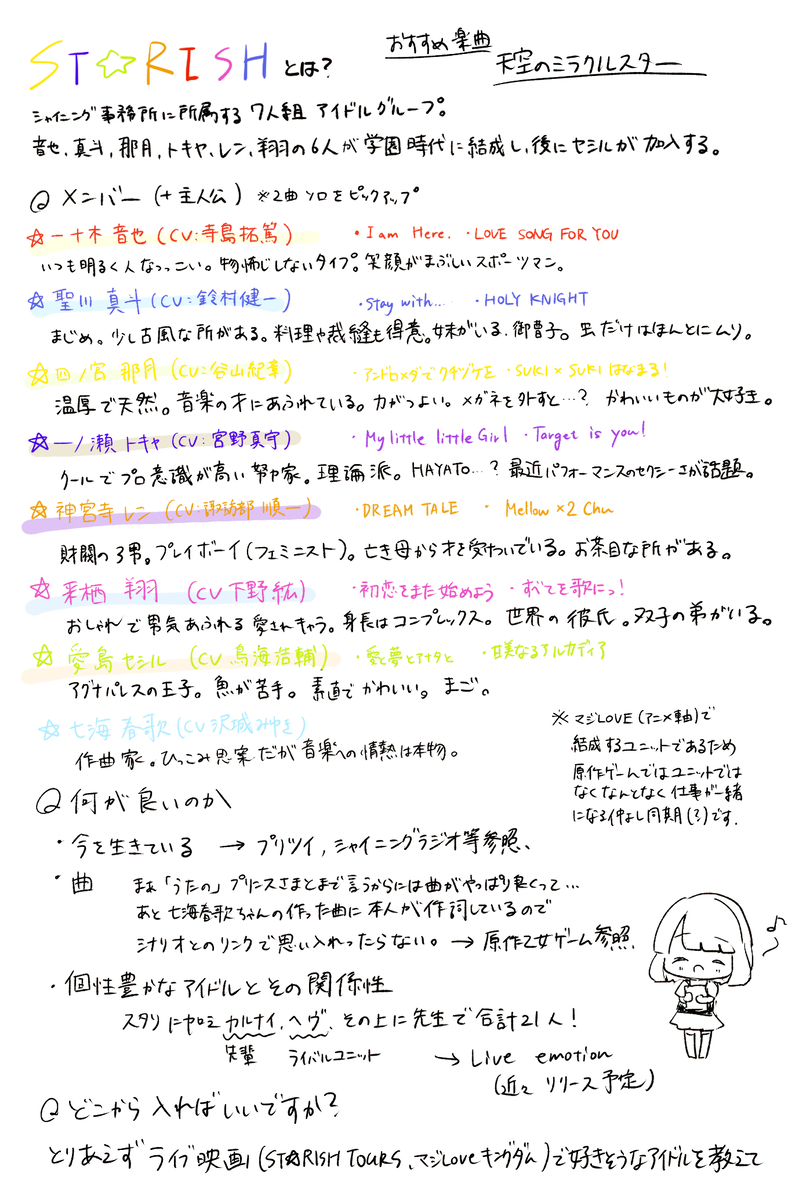 ST☆RISHとは?
おすすめ楽曲
天空のミラクルスター
シャイニング事務所に所属する7人組アイドルグループ。
音也、真斗、那月、トキヤ、レン、翔の6人が学園時代に結成し、後にセシルが加入する。
Q メンバー(+主人公) ※2曲ソロをピックアップ
☆一十木 音也(CV:寺島拓篤) ・I am Here. ・LOVE SONG FOR YOU
いつも明るく人なつっこい。物怖じしないタイプ。笑顔がまぶしいスポーツマン。
☆聖川 真斗(CV:鈴村健一) ・Stay with… ・HOLY KNIGHT
まじめ。少し古風な所がある。料理や裁縫も得意。妹がいる、御曹子。虫だけはほんとにムリ。
☆四ノ宮 那月(CV:谷山紀章) ・アンドロメダでクチヅケを ・SUKI×SUKIはなまる!
温厚で天然。音楽の才にあふれている。力がつよい。メガネを外すと…? かわいいものが大好き。
☆一ノ瀬 トキヤ(CV:宮野真守) ・My little little Girl ・Target is you!
クールでプロ意識が高い努力家。理論派。HAYATO…? 最近パフォーマンスのセクシーさが話題。
☆神宮寺 レン(CV:諏訪部順一) ・DREAM TALE ・Mellow×2 Chu
財閥の3男。プレイボーイ(フェミニスト)。亡き母から才を受けついでいる。お茶目な所がある。
☆来栖 翔(CV下野紘) ・初恋をまた始めよう ・すべてを歌にっ!
おしゃれで男気あふれる愛されキャラ。身長はコンプレックス。世界の彼氏。双子の弟がいる。
☆愛島セシル(CV鳥海浩輔) ・愛と夢とアナタと ・甘美なるアルカディア
アグナパレスの王子。魚が苦手。素直でかわいい。まご。
☆七海 春歌(CV沢城みゆき)
作曲家。ひっこみ思案だが音楽への情熱は本物。
※マジLOVE(アニメ軸)で
結成するユニットであるため
原作ゲームではユニットでは
なくなんとなく仕事が一緒
になる仲よし同期(?)です.
Q 何が良いのか
・今を生きている → プリツイ, シャイニングラジオ等参照、
・曲 まぁ「うたの」プリンスさまとまで言うからには曲がやっぱり良くって…
あと七海春歌ちゃんの作った曲に本人が作詞しているので
シナリオとのリンクで思い入れったらない。→ 原作乙女ゲーム参照、
・個性豊かなアイドルとその関係性
スタリにヤロミカルナイ,ヘヴ、その上に先生で合計21人!
先輩 ライバルユニット → Live emotion
(近々リリース予定)
Q どこから入ればいいですか?
とりあえずライブ映画(ST☆RISH TOURS、マジLoveキングダム)で好きそうなアイドルを教えて